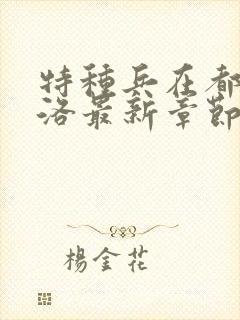 特種兵在都
洛最新章節
楊金花